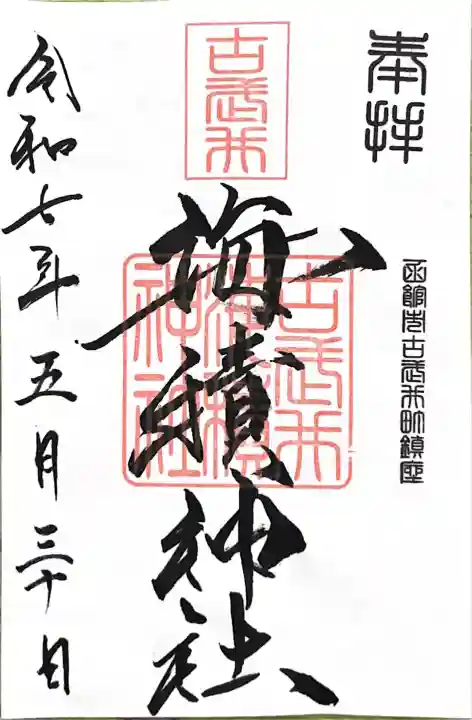 奉拝
函館市古武井町鎮座
古武井
海積神社
古武井
海積
神社
令和七年五月三十日